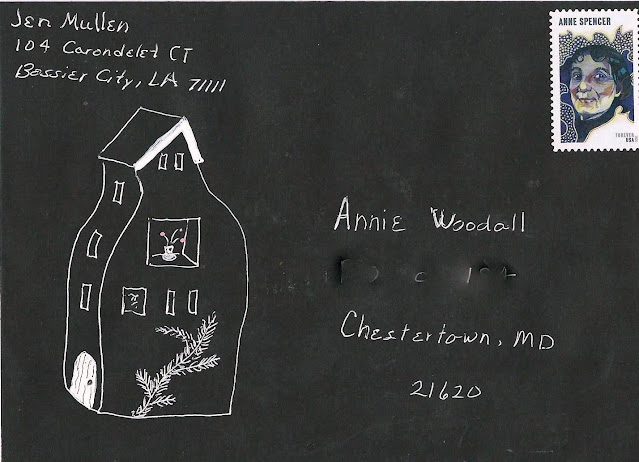 Jen Mullen
104 Carondelet CT
Bossier City, LA 71111
ANNE SPENCER
FOREVER
USA
Annie Woodall
Chestertown, MD
21620